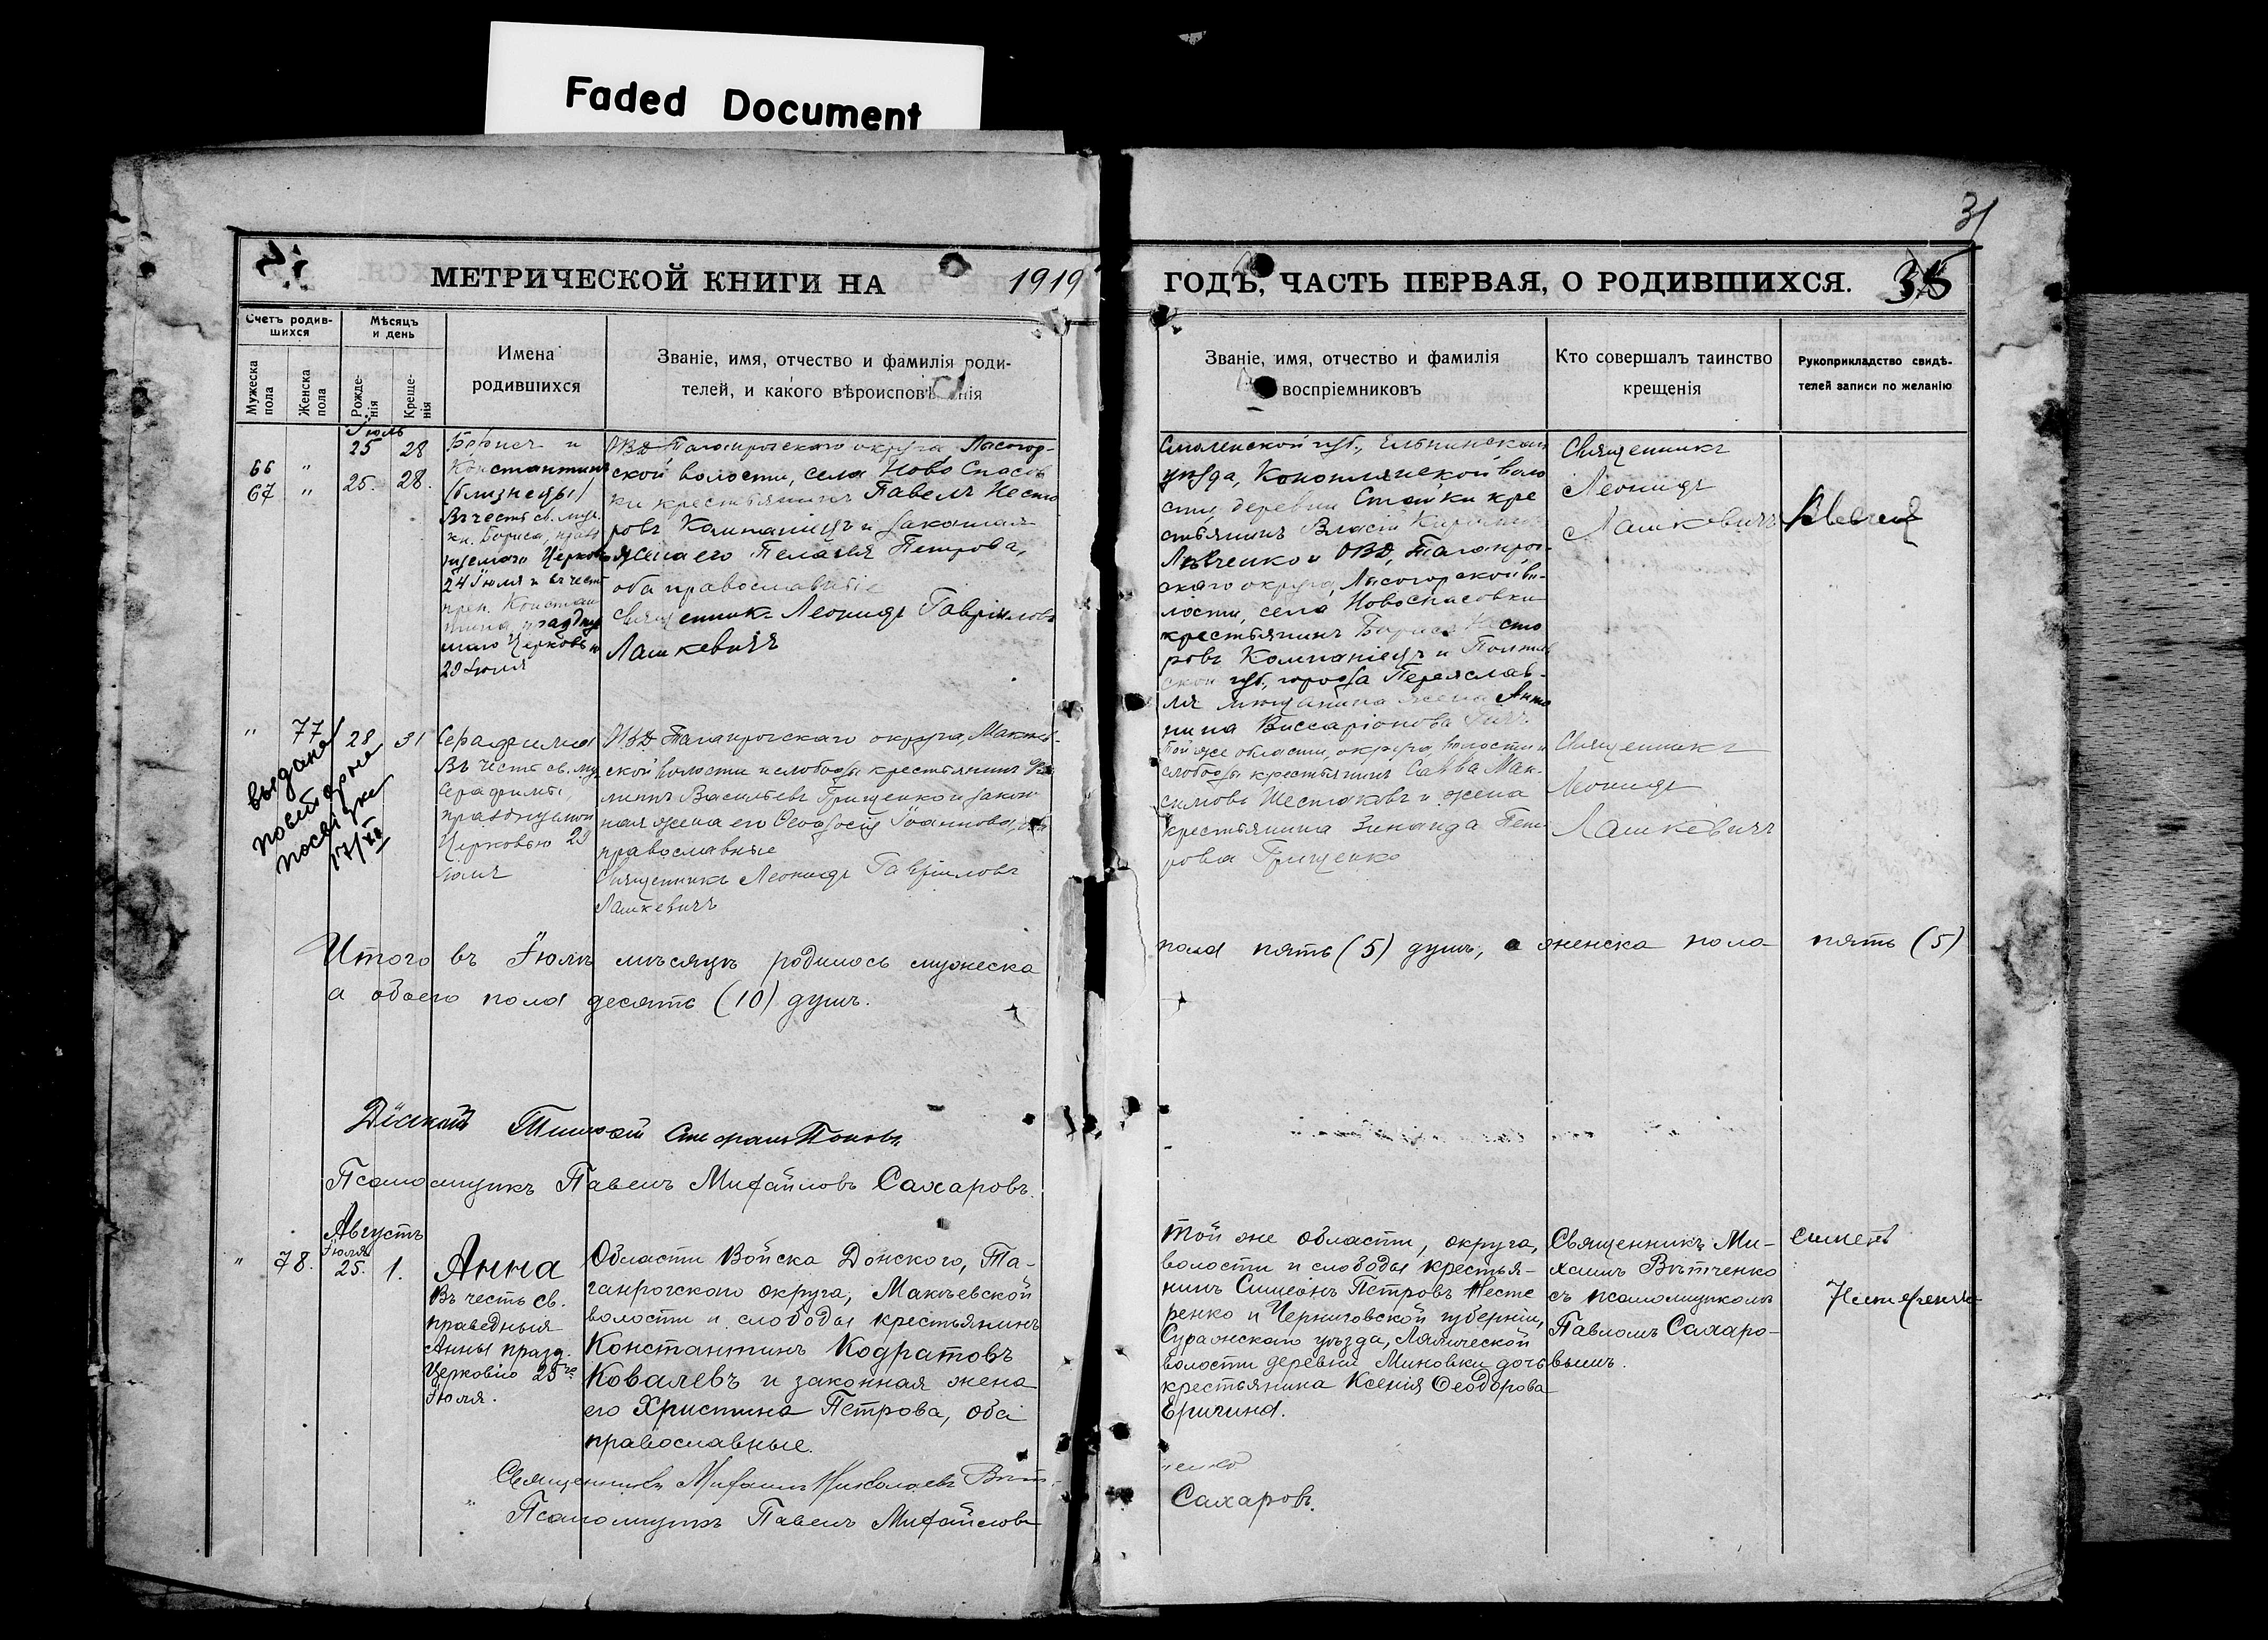 Faded Document
31
МЕТРИЧЕСКОЙ КНИГИ НА 1919 ГОДЪ, ЧАСТЬ ПЕРВАЯ, О РОДИВШИХСЯ. 35
Счетъ родив-
шихся
Мужеска пола
Женска пола
Мѣсяцъ
и день
Рожде-
нія
Креще-
нія
Имена
родившихся
Званіе, имя, отчество и фамилія роди-
телей, и какого вѣроисповѣданія
Званіе, имя, отчество и фамилія
воспріемниковъ
Кто совершалъ таинство
крещенія
Рукоприкладство свидѣ-
телей записи по желанію
Іюль
66 " 25 28
67 " 25. 28.
Борисъ и
Константинъ
(близнецы)
Въ честь св. муч.
кн. Бориса, празд
нуемаго Церков
24 Іюля и въ честь
преп. Констан
тина праздну
маго Церковью
29 Іюля
ОВД Таганрогскаго округа, Лысогор-
ской волости, села Ново Спасов
ки крестьянинъ Павелъ Несто
ровъ Компаніецъ и законная
жена его Пелагея Петрова,
оба православные
Священникъ Леонидъ Гавріиловъ
Лашкевичъ
Смоленской губ., Ельнинскаго
уѣзда, Коноплянской воло
сти, деревни
крестьянинъ Власій
Левченко и ОВД, Таганрог-
скаго округа, Лысогорской во-
лости, села Новоспасовки
крестьянинъ Борисъ Несто
ровъ Компаніецъ и Полтав
ской губ., города Переяслав-
ля мѣщанина жена Анто
нина Виссаріонова
Священникъ
Леонидъ
Лашкевичъ
" 77 28 31
выдана
повторная
17/XI
Серафима
Въ честь св. му
Серафимы,
празднуемой
Церковью 29
Іюля
ОВД Таганрогскаго округа, Макѣев-
ской волости и слободы крестьянинъ
Васильевъ Грищенко и закон
ная жена его Ѳеодосія Іоаннова, оба
православные
Священникъ Леонидъ Гавріиловъ
Лашкевичъ
Той же области, округа, волости и
слободы крестьянинъ Савва Мак-
симовъ Шестаковъ и жена
крестьянина Зинаида Пет
ровна Грищенко
Священникъ
Леонидъ
Лашкевичъ
Итого въ Іюлѣ мѣсяцѣ родилось мужеска пола пять (5) душъ, а женска пола пять (5)
а обоего пола десять (10) душъ.
Діаконъ Стефанъ Поповъ
Псаломщикъ Павелъ Михайловъ Сахаровъ.
Августъ
Іюля
" 78. 25. 1.
Анна
Въ честь св.
праведныя
Анны празд.
Церковію 25го
Іюля.
Области Войска Донского, Та-
ганрогскаго округа, Макѣевской
волости и слободы крестьянинъ
Константинъ Кодратовъ
Ковалевъ и законная жена
его Христина Петрова, оба
православные.
Той же области, округа,
волости и слободы крестья-
нинъ Симеонъ Петровъ Несте
ренко и Черниговской губерніи,
Суражскаго уѣзда, Лялической
волости деревни Миновки дочь
крестьянина Ксенія Ѳеодорова
Еричина.
Священникъ Ми-
хаилъ Вѣтченко
съ псаломщикомъ
Павломъ Сахаро-
вымъ.
Симеонъ
Нестеренко
Священникъ Михаилъ Николаевъ Вѣт-
ченко
Псаломщикъ Павелъ Михайловъ Сахаровъ.